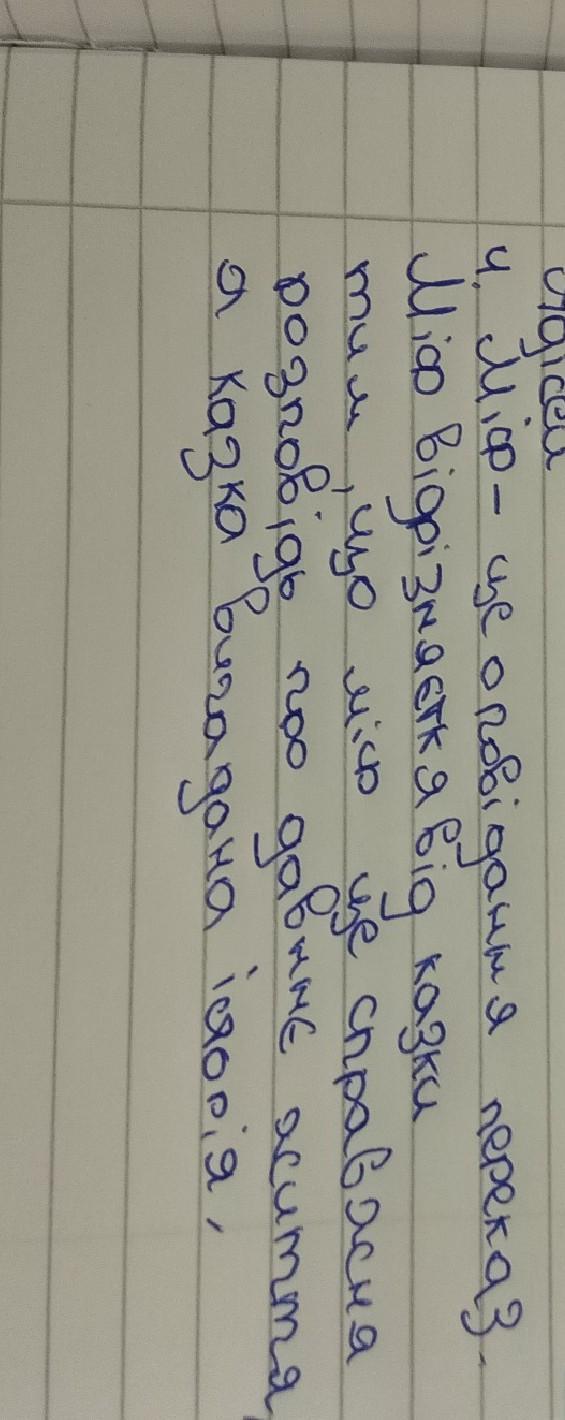 4. Міф - це оповідання переказ.
Міф відрізняєткя від казки
тим, що міф це справжня
розповідь про давннє життя,
я казка вигадана історія,